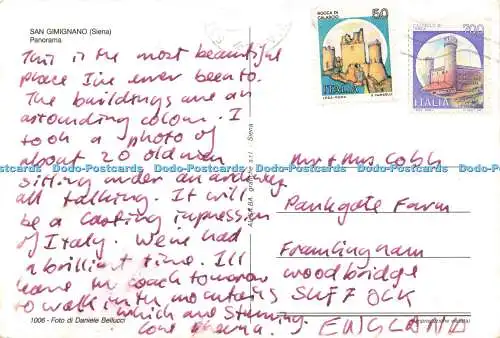 SAN GIMIGNANO (Siena)
Panorama
This is the most beautiful
place I've ever been to.
The buildings are an
astounding colour. I
took a photo of
about 20 old men
sitting under an archway
all talking. It will
be a lasting impression
of Italy. We've had
a brilliant time. I'll
leave in coach tomorrow
to walk in the mountains
which are stunning.
love
1006 - Foto di Daniele Bellucci
ROCCA DI
CALASCIO
50
ITALIA
200
ITALIA
Mr & Mrs Cobb
Pankgate Farm
Framlingham
Woodbridge
SUFFOLK
ENGLAND
Dodo-Postcards Dodo-Postcards Dodo-Postcards Dodo-Postcards Dodo-Postcards